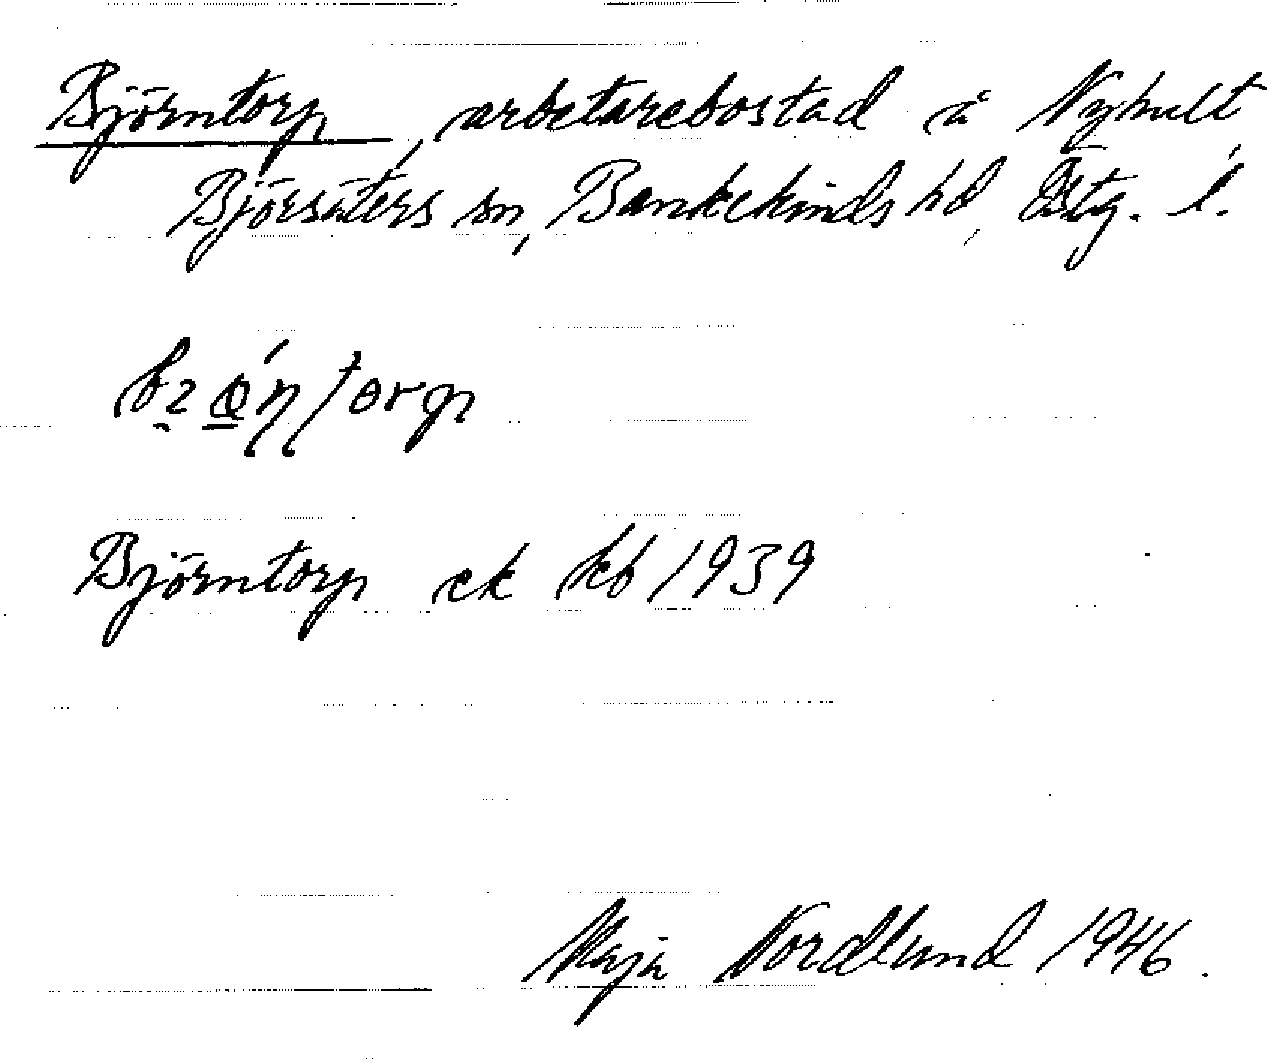 Björntorp, arbetarebostad å Nyhult,
Björsäters sn, Bankekinds hd, Östg. l.
Björntorp ek kb 1939
Maja Nordlund 1946.